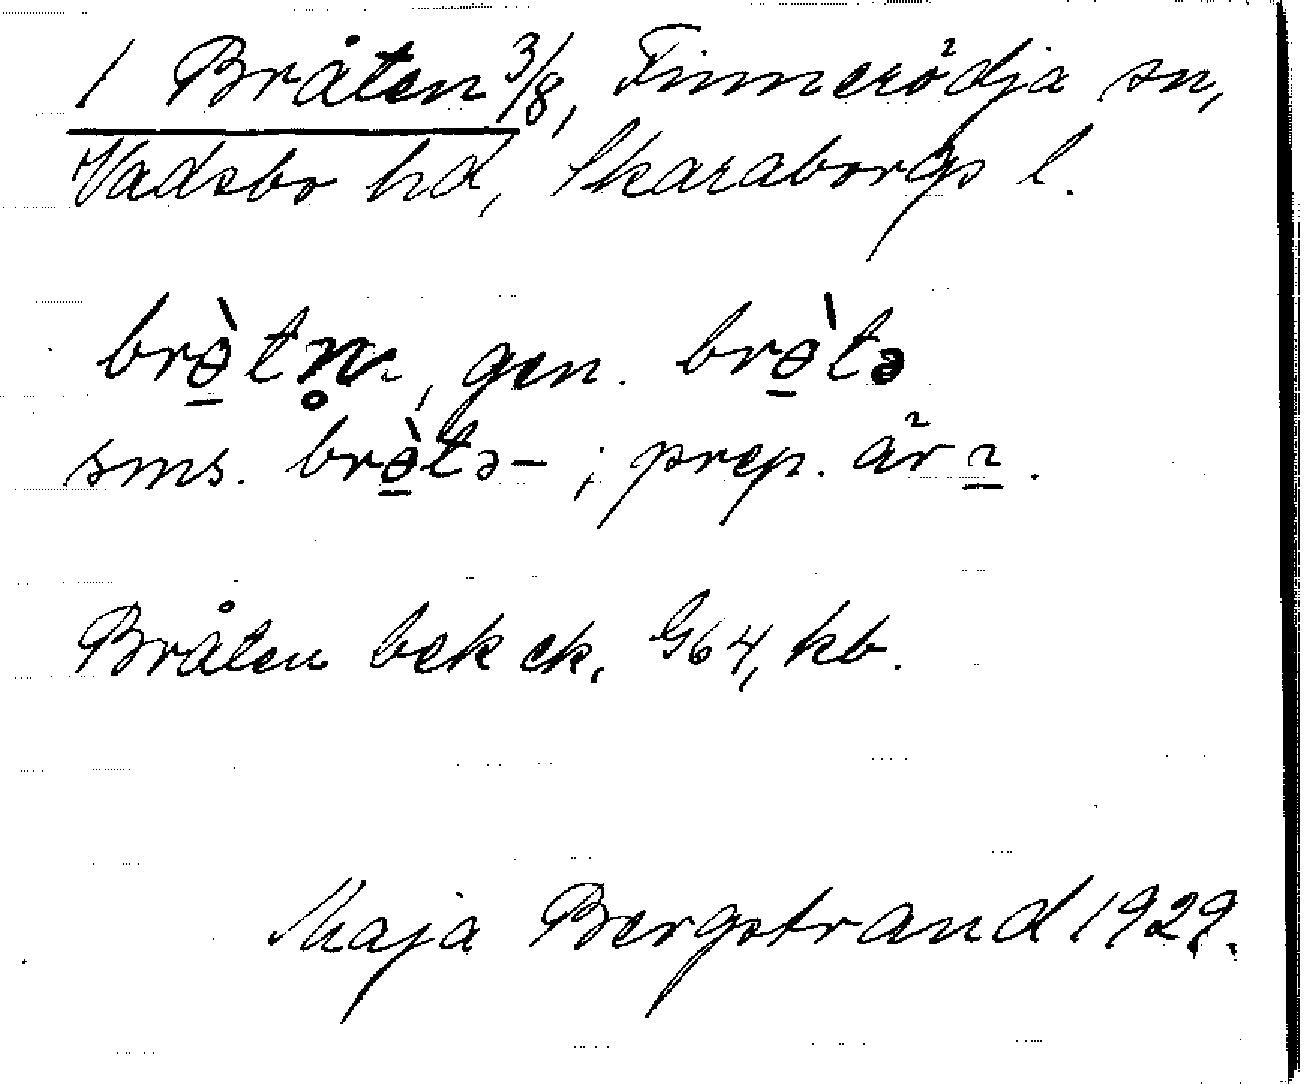 1 Bråten 3/8, Finnerödja sn,
Vadsbo hd, Skaraborgs l.
brə̠̀tn̥, gen. brə̠̀tə
sms. brə̠̀tə- ; prep. är
Bråten bek ek. G64, kb.
Maja Bergstrand 1929.